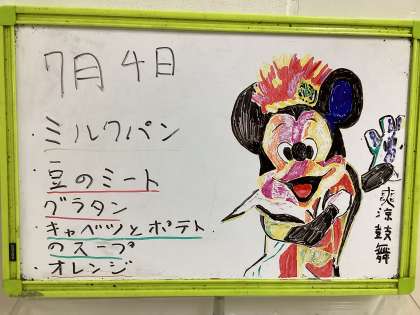 7月4日
・ミルクパン
・豆のミート
グラタン
・キャベツとポテト
のスープ
・オレンジ
爽涼鼓舞